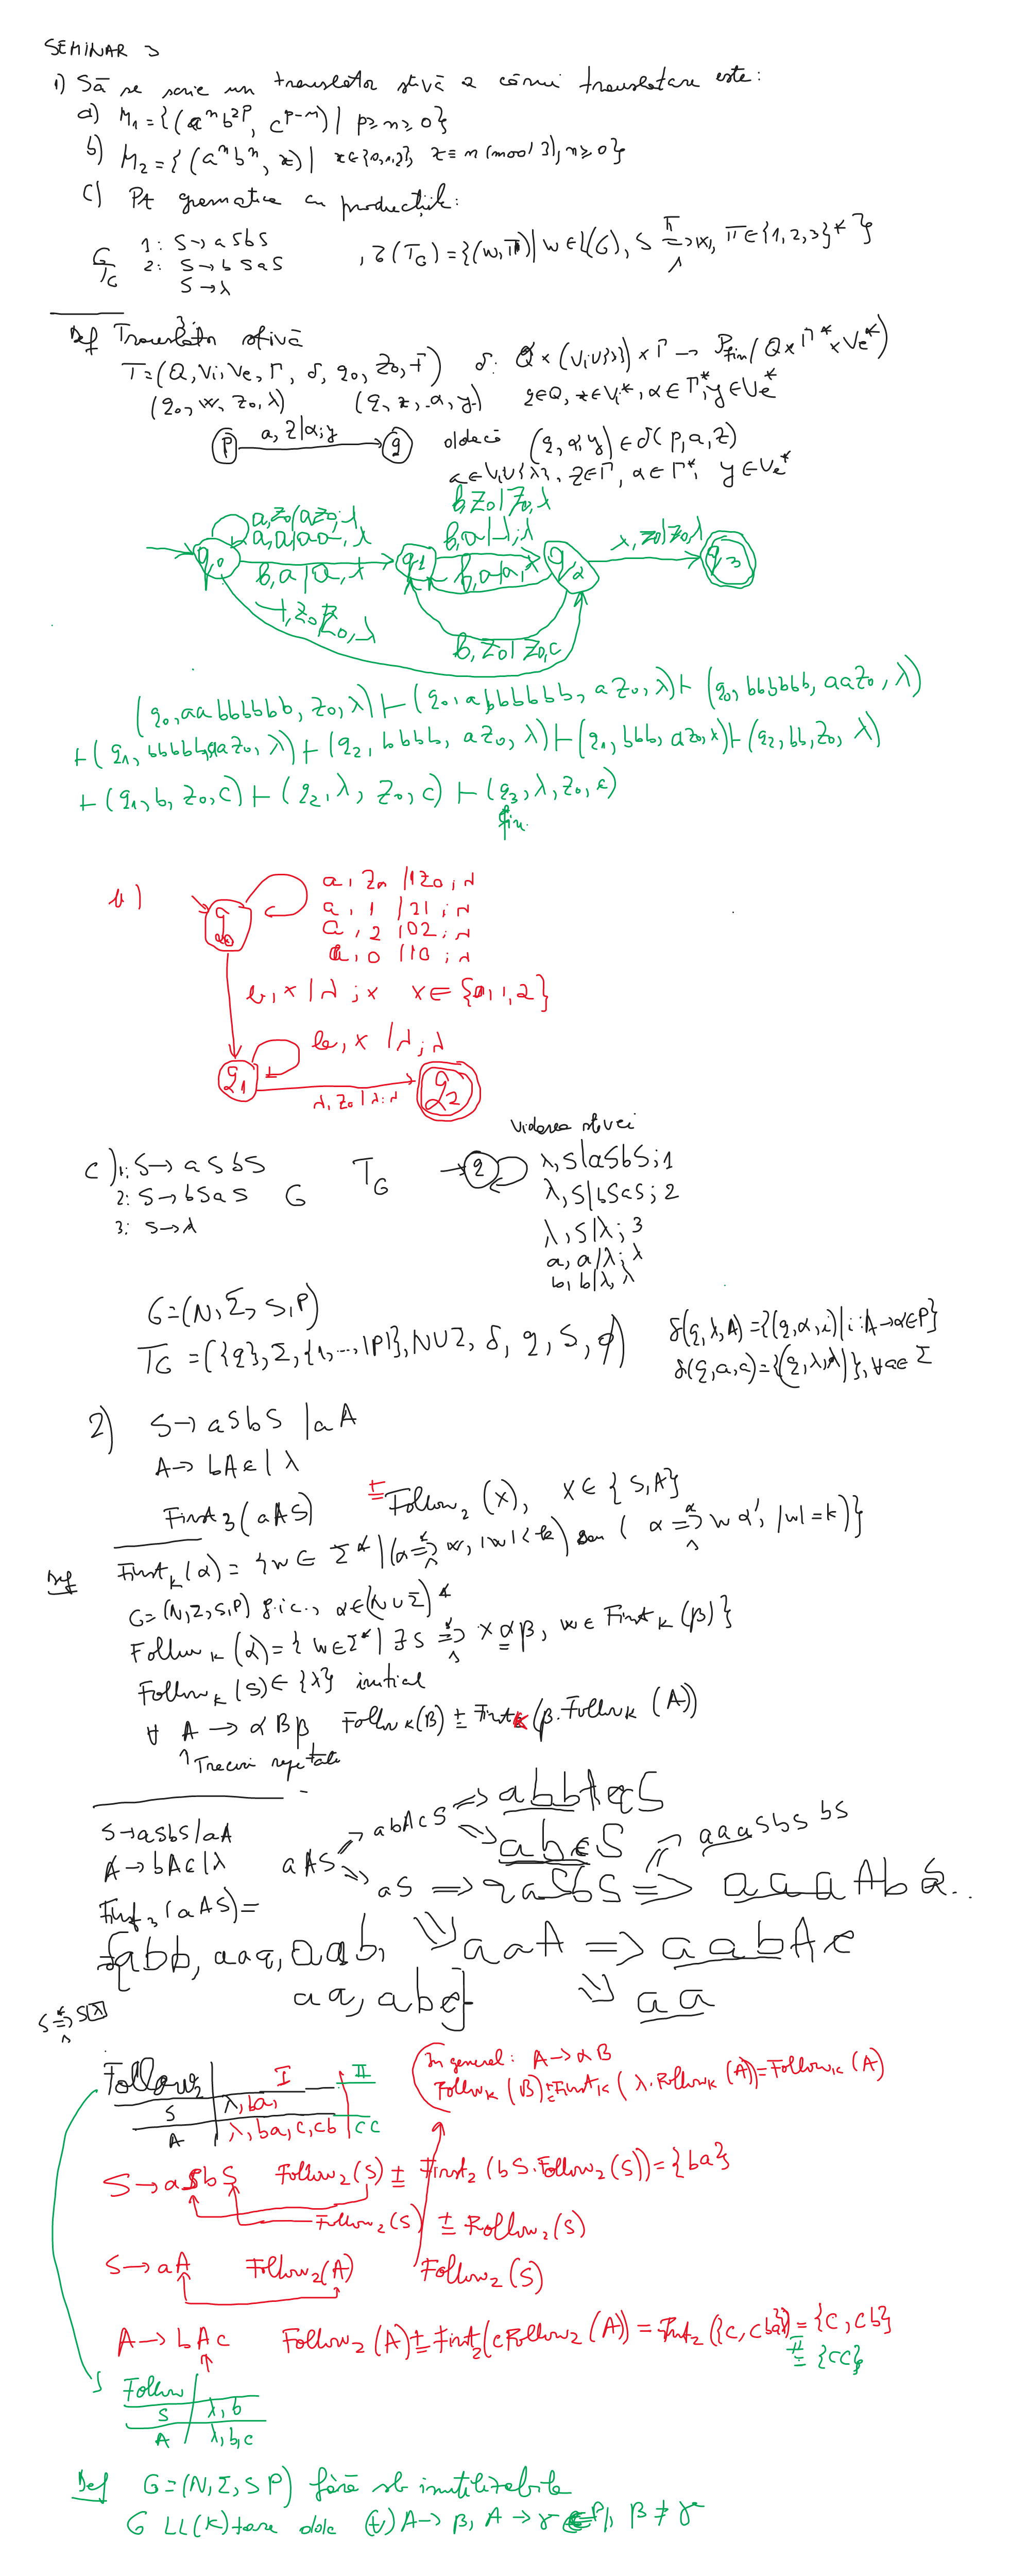 SEMINAR 3
1) Să se scrie un translator stivă a cărui translatare este:
a) M₁ = {(aⁿb²ᵖ, cᵖ⁻ⁿ) | p ≥ n ≥ 0}
b) M₂ = {(aⁿbⁿ, x) | x∈{0,1,2}, x ≡ n (mod 3), n ≥ 0}
c) Pt gramatica cu producțiile:
G 1: S → aSbS , τ(T_G) = {(w, π) | w ∈ L(G), S ⇒ w, π ∈ {1,2,3}* }
T_G 2: S → bSaS
3: S → λ
Def Translator stivă
T = (Q, Vi, Ve, Γ, δ, q₀, Z₀, F) δ: Q × (Vi∪{λ}) × Γ → P_fin(Q × Γ* × Ve*)
(q₀, w, Z₀, λ) (q, x, α, y) q∈Q, x∈Vi*, α∈Γ*, y∈Ve*
p a, Z|α; y q ddacă (q, α, y) ∈ δ(p, a, Z)
a∈Vi∪{λ}, Z∈Γ, α∈Γ*, y∈Ve*
b, Z₀|Z₀, λ
a, Z₀|aZ₀; λ
a, a|aa, λ
b, a|λ; λ
λ, Z₀|Z₀, λ
q₀ q₁ q₂ q₃
b, a|a, λ b, a|a, λ
λ, Z₀|Z₀, λ
b, Z₀|Z₀, c
(q₀, aabbbbbb, Z₀, λ) ⊢ (q₀, abbbbbb, aZ₀, λ) ⊢ (q₀, bbbbbb, aaZ₀, λ)
⊢ (q₁, bbbbb, aaZ₀, λ) ⊢ (q₂, bbbb, aZ₀, λ) ⊢ (q₁, bbb, aZ₀, λ) ⊢ (q₂, bb, Z₀, λ)
⊢ (q₁, b, Z₀, c) ⊢ (q₂, λ, Z₀, c) ⊢ (q₃, λ, Z₀, c)
fin.
b)
q₀
a, Z₀ | 1Z₀; λ
a, 1 | 21; λ
a, 2 | 02; λ
a, 0 | 10; λ
b, x | λ; x x ∈ {0,1,2}
b, x | λ; λ
q₁ q₂
λ, Z₀ | λ; λ
Viderea stivei
c) 1: S → aSbS T_G q λ, S|aSbS; 1
2: S → bSaS G λ, S|bSaS; 2
3: S → λ λ, S|λ; 3
a, a|λ; λ
b, b|λ, λ
G = (N, Σ, S, P)
T_G = ({q}, Σ, {1,...,|P|}, N∪Σ, δ, q, S, ∅) δ(q, λ, A) = {(q, α, i) | i: A→α∈P}
δ(q, a, a) = {(q, λ, λ)}, ∀a∈Σ
2) S → aSbS | aA
A → bAc | λ
First₃(aAS) Follow₂(X), X ∈ {S, A}
Def First_k(α) = {w ∈ Σ* | (α ⇒* w, |w| < k) sau (α ⇒* wα', |w| = k)}
G = (N, Σ, S, P) g.i.c., α∈(N∪Σ)*
Follow_k(α) = {w∈Σ* | ∃ S ⇒* xαβ, w ∈ First_k(β)}
Follow_k(S) ∈ {λ} initial
∀ A → αBβ Follow_k(B) ± First_k(β·Follow_k(A))
Treceri repetate
S → aSbS | aA
A → bAc | λ
First₃(aAS) =
{abb, aaa, aab,
aa, abc}
aAS ⇒ abAcS ⇒ abbAccS
⇒ abcS
⇒ aS ⇒ aaSbS ⇒ aaaAbS..
aaaSbSbS
aaA ⇒ aabAc
aa
S ⇒* Sλ
Follow₂ | I | II
S | λ, ba,
A | λ, ba, c, cb | cc
In general: A → αB
Follow_k(B) ± First_k(λ·Follow_k(A)) = Follow_k(A)
S → aSbS Follow₂(S) ± First₂(bS·Follow₂(S)) = {ba}
Follow₂(S) ± Follow₂(S)
S → aA Follow₂(A) Follow₂(S)
A → bAc Follow₂(A) ± First₂(cFollow₂(A)) = First₂({c, cba}) = {c, cb}
II ± {cc}
Follow
S | λ, b
A | λ, b, c
Def G = (N, Σ, S, P) fără sb inutilizabile
G LL(k) tare dacă (∀) A → β, A → γ ∈ P, β ≠ γ